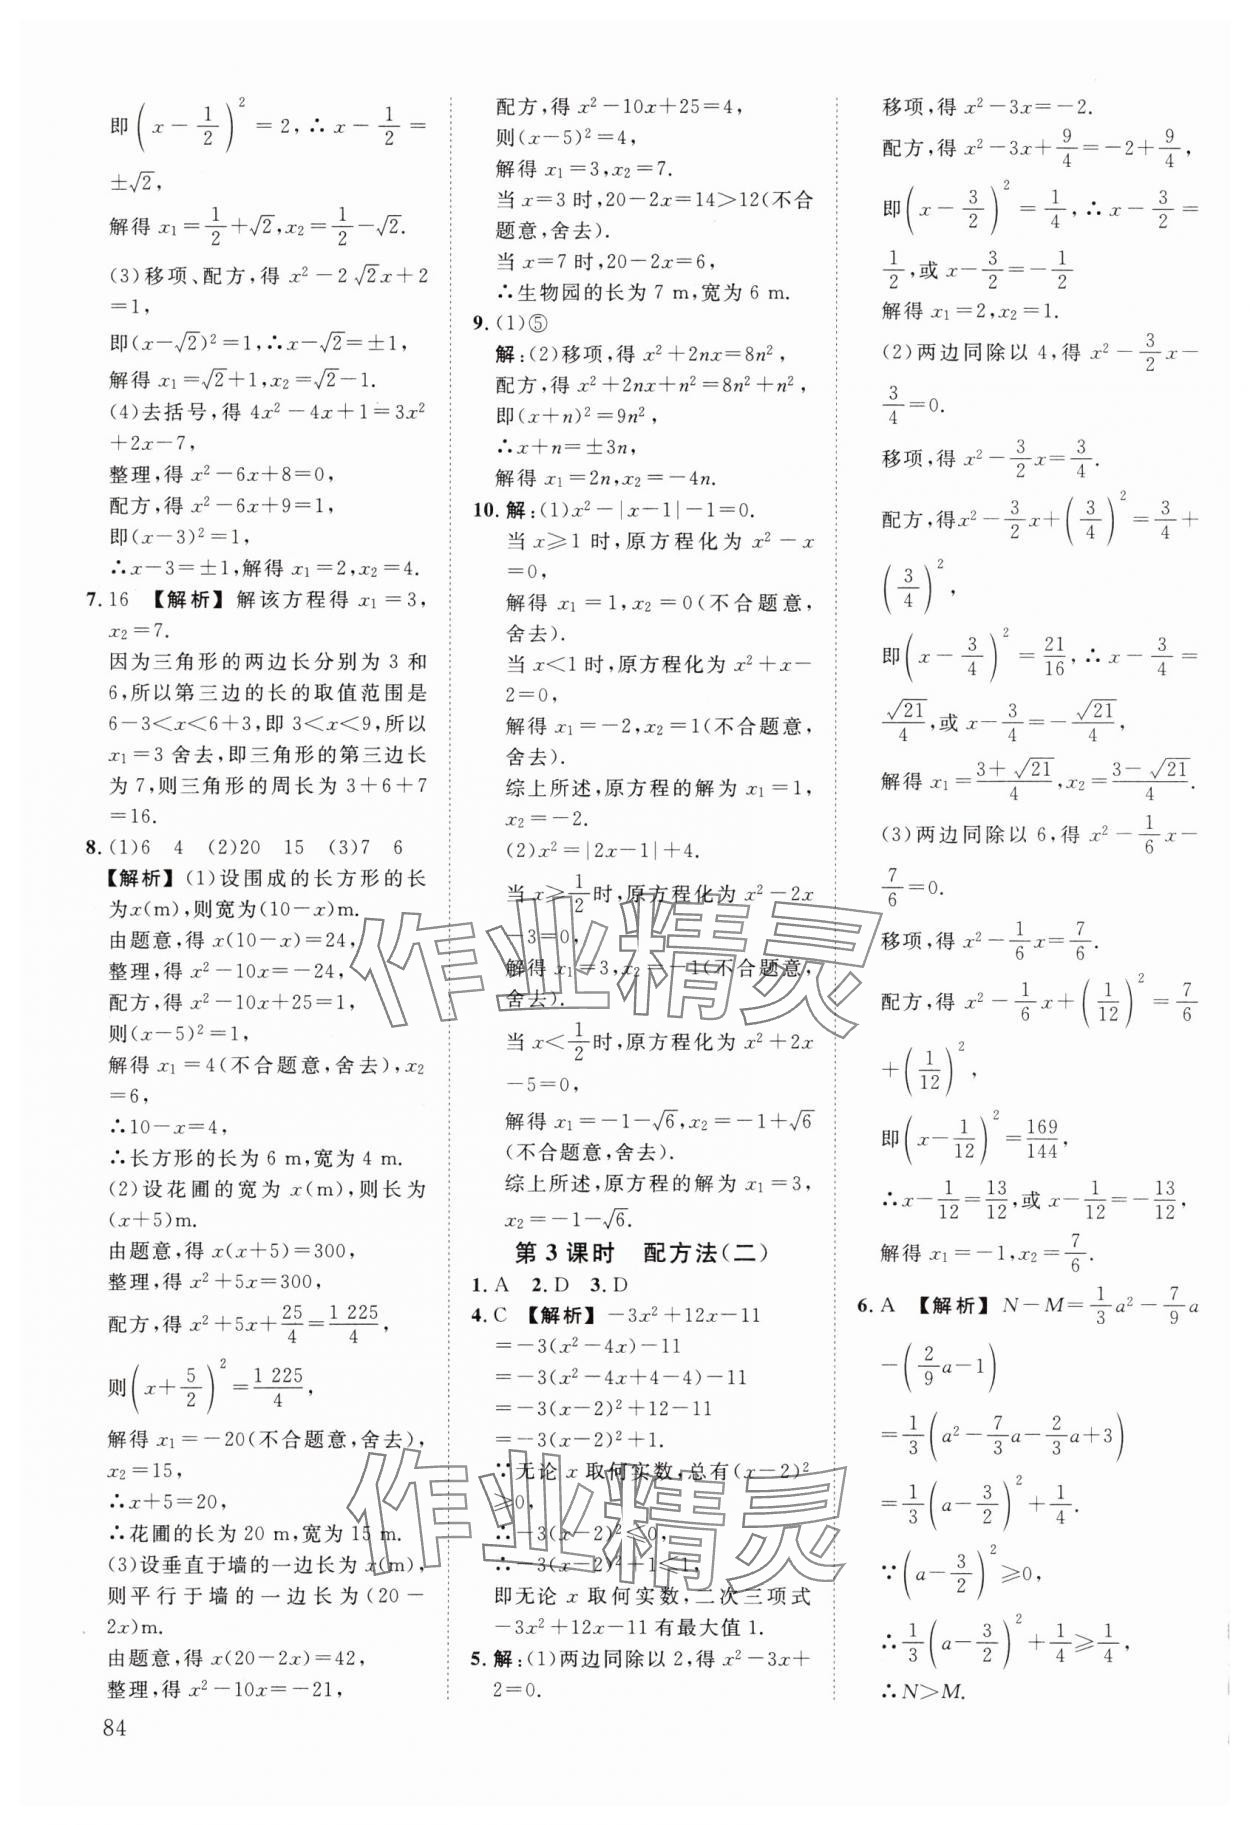 即(x-1/2)²=2,∴x-1/2=
±√2,
解得 x₁=1/2+√2,x₂=1/2-√2.
(3)移项、配方,得 x²-2√2x+2
=1,
即(x-√2)²=1,∴x-√2=±1,
解得 x₁=√2+1,x₂=√2-1.
(4)去括号,得 4x²-4x+1=3x²
+2x-7,
整理,得 x²-6x+8=0,
配方,得 x²-6x+9=1,
即(x-3)²=1,
∴x-3=±1,解得 x₁=2,x₂=4.
7. 16 【解析】解该方程得 x₁=3,
x₂=7.
因为三角形的两边长分别为 3 和
6,所以第三边的长的取值范围是
6-3<x<6+3,即 3<x<9,所以
x₁=3 舍去,即三角形的第三边长
为 7,则三角形的周长为 3+6+7
=16.
8. (1)6 4 (2)20 15 (3)7 6
【解析】(1)设围成的长方形的长
为x(m),则宽为(10-x)m.
由题意,得 x(10-x)=24,
整理,得 x²-10x=-24,
配方,得 x²-10x+25=1,
则(x-5)²=1,
解得 x₁=4(不合题意,舍去),x₂
=6,
∴10-x=4,
∴长方形的长为 6 m,宽为 4 m.
(2)设花圃的宽为 x(m),则长为
(x+5)m.
由题意,得 x(x+5)=300,
整理,得 x²+5x=300,
配方,得 x²+5x+25/4=1 225/4,
则(x+5/2)²=1 225/4,
解得 x₁=-20(不合题意,舍去),
x₂=15,
∴x+5=20,
∴花圃的长为 20 m,宽为 15 m.
(3)设垂直于墙的一边长为 x(m),
则平行于墙的一边长为(20-
2x)m.
由题意,得 x(20-2x)=42,
整理,得 x²-10x=-21,
84
配方,得 x²-10x+25=4,
则(x-5)²=4,
解得 x₁=3,x₂=7.
当 x=3 时,20-2x=14>12(不合
题意,舍去).
当 x=7 时,20-2x=6,
∴生物园的长为 7 m,宽为 6 m.
9. (1)⑤
解:(2)移项,得 x²+2nx=8n²,
配方,得 x²+2nx+n²=8n²+n²,
即(x+n)²=9n²,
∴x+n=±3n,
解得 x₁=2n,x₂=-4n.
10. 解:(1)x²-|x-1|-1=0.
当 x⩾1 时,原方程化为 x²-x
=0,
解得 x₁=1,x₂=0(不合题意,
舍去).
当 x<1 时,原方程化为 x²+x-
2=0,
解得 x₁=-2,x₂=1(不合题意,
舍去).
综上所述,原方程的解为 x₁=1,
x₂=-2.
(2)x²=|2x-1|+4.
当 x⩾1/2时,原方程化为 x²-2x
-3=0,
解得 x₁=3,x₂=-1(不合题意,
舍去).
当 x<1/2时,原方程化为 x²+2x
-5=0,
解得 x₁=-1-√6,x₂=-1+√6
(不合题意,舍去).
综上所述,原方程的解为 x₁=3,
x₂=-1-√6.
第 3 课时 配方法(二)
1. A 2. D 3. D
4. C 【解析】-3x²+12x-11
=-3(x²-4x)-11
=-3(x²-4x+4-4)-11
=-3(x-2)²+12-11
=-3(x-2)²+1.
∵无论 x 取何实数,总有(x-2)²
⩾0,
∴-3(x-2)²⩽0,
∴-3(x-2)²+1⩽1,
即无论 x 取何实数,二次三项式
-3x²+12x-11 有最大值 1.
5. 解:(1)两边同除以 2,得 x²-3x+
2=0.
移项,得 x²-3x=-2.
配方,得 x²-3x+9/4=-2+9/4,
即(x-3/2)²=1/4,∴x-3/2=
1/2,或 x-3/2=-1/2
解得 x₁=2,x₂=1.
(2)两边同除以 4,得 x²-3/2x-
3/4=0.
移项,得 x²-3/2x=3/4.
配方,得x²-3/2x+(3/4)²=3/4+
(3/4)²,
即(x-3/4)²=21/16,∴x-3/4=
√21/4,或 x-3/4=-√21/4,
解得 x₁=(3+√21)/4,x₂=(3-√21)/4.
(3)两边同除以 6,得 x²-1/6x-
7/6=0.
移项,得 x²-1/6x=7/6.
配方,得 x²-1/6x+(1/12)²=7/6
+(1/12)²,
即(x-1/12)²=169/144,
∴x-1/12=13/12,或 x-1/12=-13/12,
解得 x₁=-1,x₂=7/6.
6. A 【解析】N-M=1/3a²-7/9a
-(2/9a-1)
=1/3(a²-7/3a-2/3a+3)
=1/3(a-3/2)²+1/4.
∵(a-3/2)²⩾0,
∴1/3(a-3/2)²+1/4⩾1/4,
∴N>M.
作业精灵
作业精灵